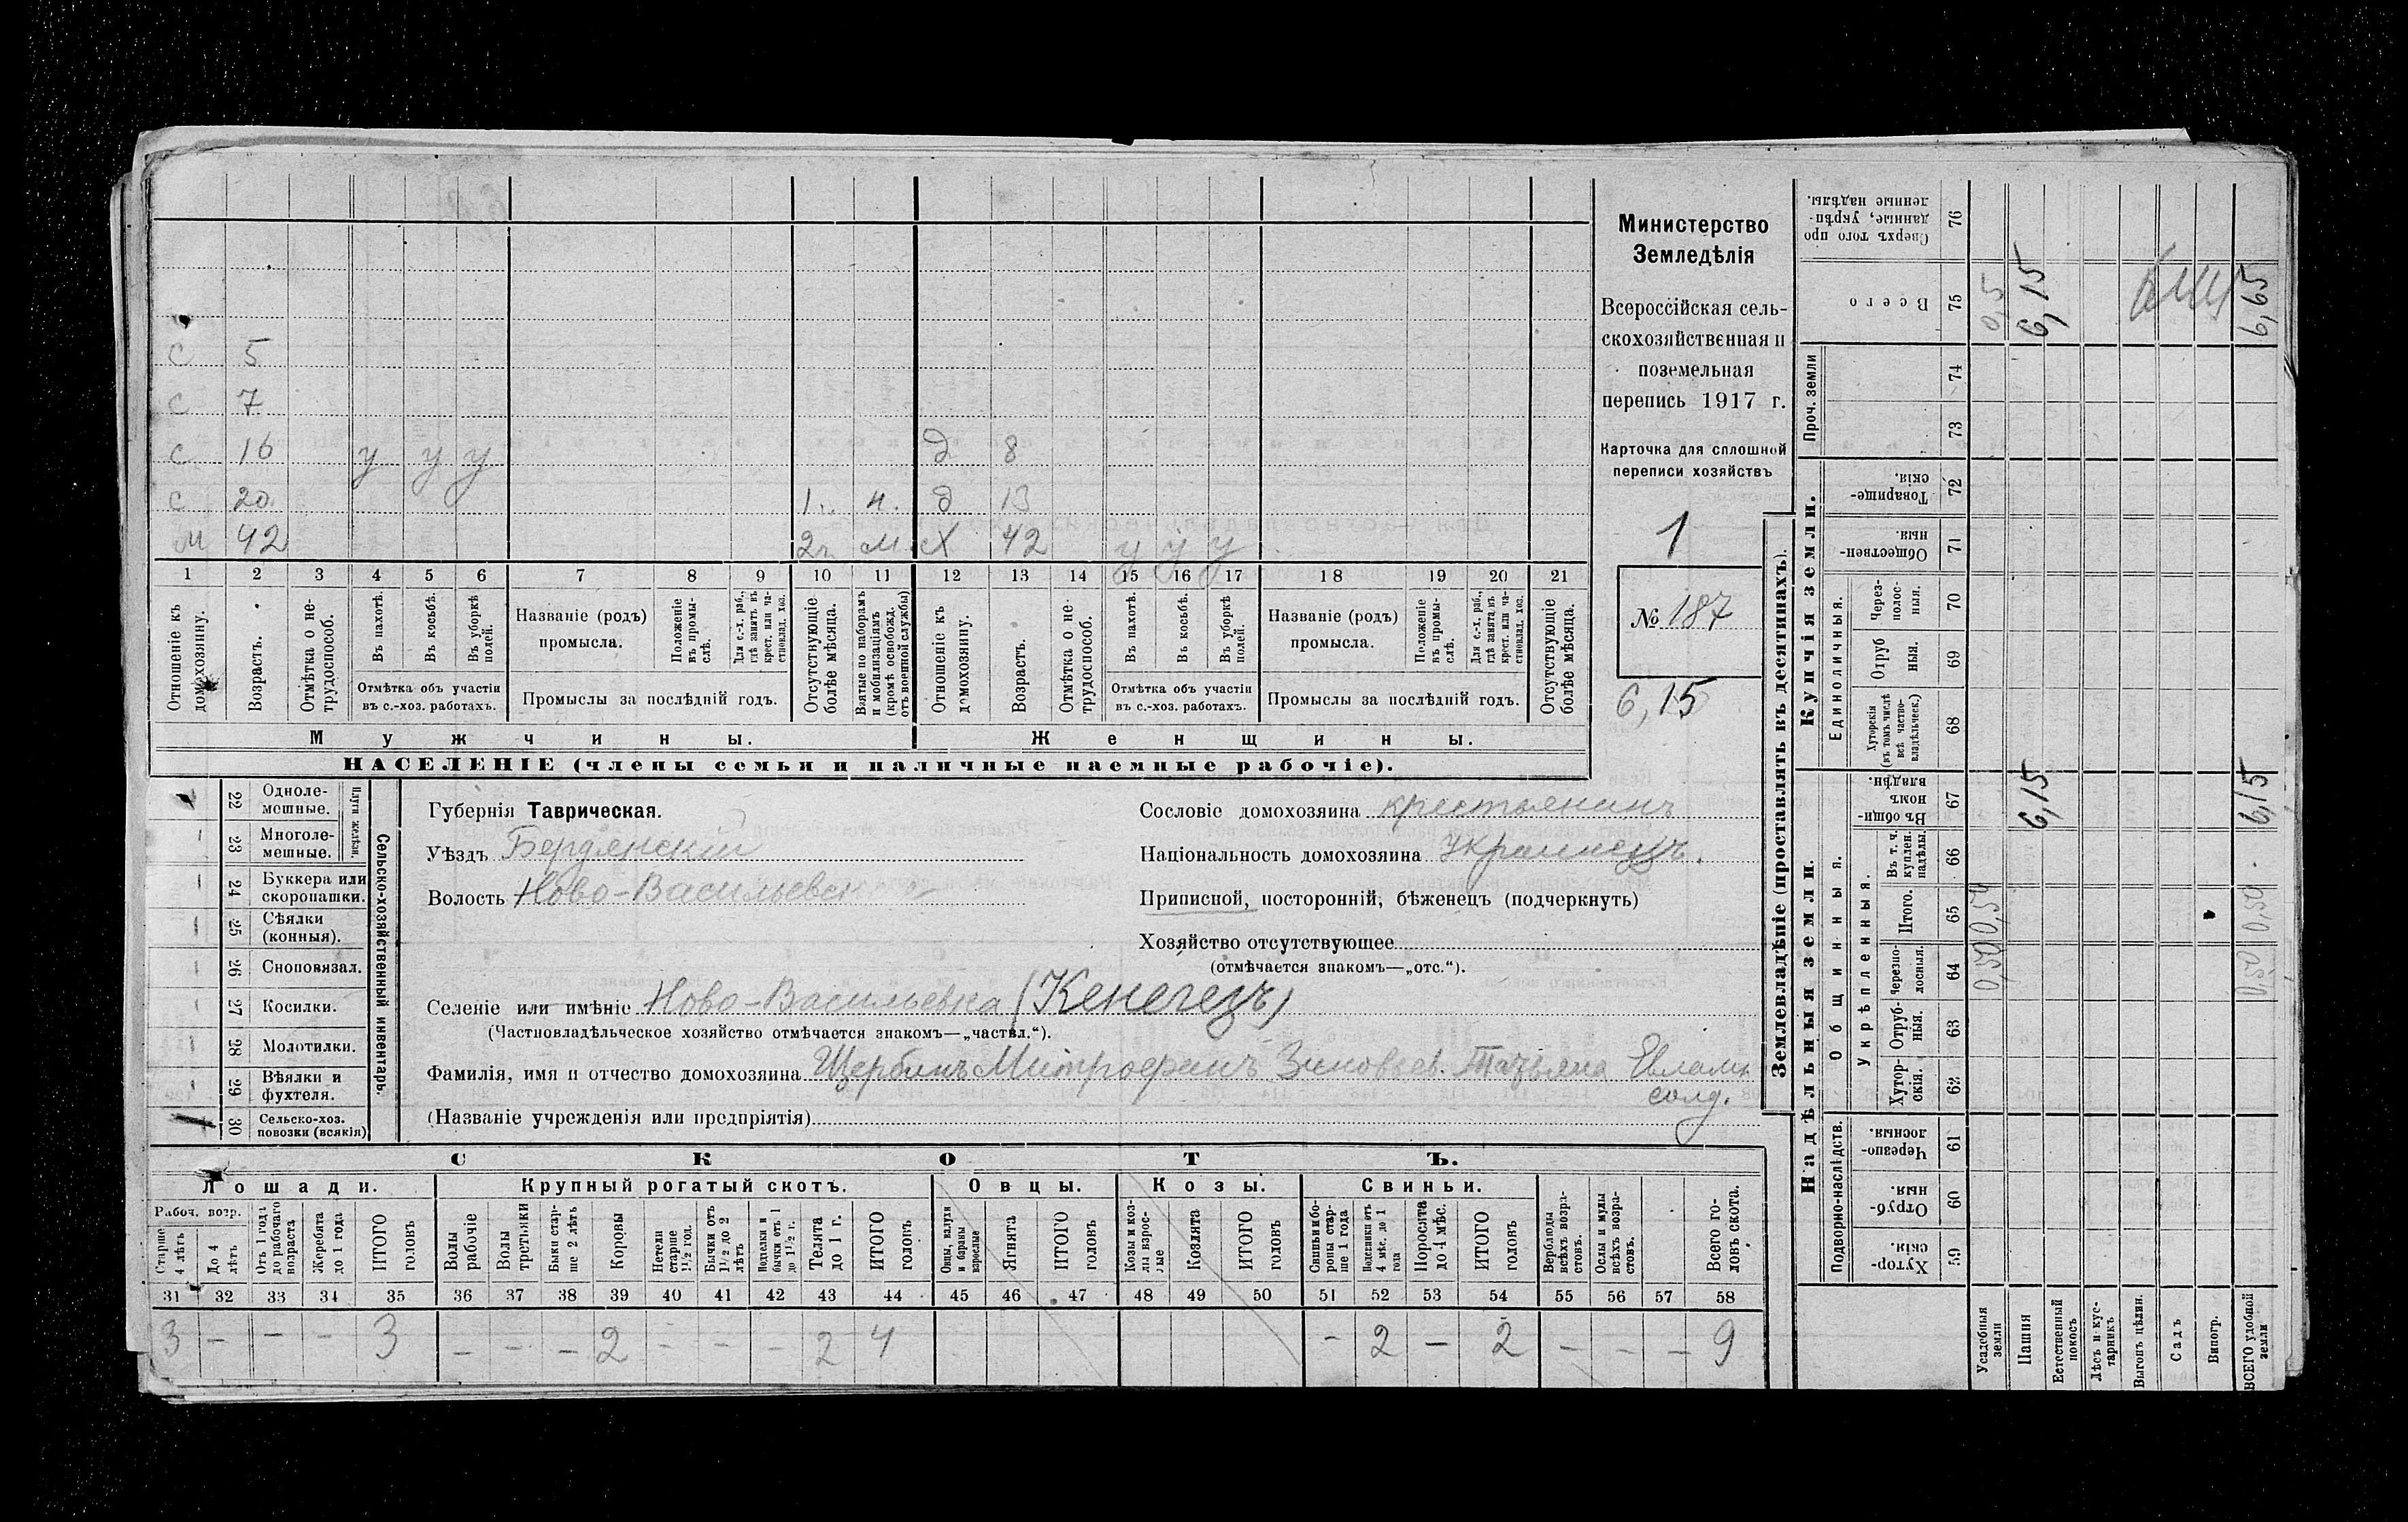 Министерство
Земледѣлія
Всероссійская сель-
скохозяйственная и
поземельная
перепись 1917 г.
Карточка для сплошной
переписи хозяйствъ
1
№ 187
6,15
с 5
с 7
с 16 у у у д 8
с 20 1. н. д 13
м 42 2 м. Х 42 у у у
1 2 3 4 5 6 7 8 9 10 11 12 13 14 15 16 17 18 19 20 21
Отношеніе къ домохозяину.
Возрастъ.
Отмѣтка о не-трудоспособ.
Въ пахотѣ.
Въ косьбѣ.
Въ уборкѣ полей.
Отмѣтка объ участіи
въ с.-хоз. работахъ.
Названіе (родъ)
промысла.
Положеніе въ промы-слѣ.
Для с.-х. раб., гдѣ занятъ въ крест. или ча-стновлад. хоз.
Промыслы за послѣдній годъ.
Отсутствующіе болѣе мѣсяца.
Взятые по наборамъ и мобилизаціямъ (кромѣ освобожд. отъ военной службы)
Отношеніе къ домохозяину.
Возрастъ.
Отмѣтка о не-трудоспособ.
Въ пахотѣ.
Въ косьбѣ.
Въ уборкѣ полей.
Отмѣтка объ участіи
въ с.-хоз. работахъ.
Названіе (родъ)
промысла.
Положеніе въ промы-слѣ.
Для с.-х. раб., гдѣ занята въ крест. или ча-стновлад. хоз.
Промыслы за послѣдній годъ.
Отсутствующіе болѣе мѣсяца.
Мужчины. Женщины.
НАСЕЛЕНІЕ (члены семьи и наличные наемные рабочіе).
Сельско-хозяйственный инвентарь.
Плуги желѣзн.
22 Одноле-мешные.
23 Многоле-мешные.
24 Буккера или скоропашки.
25 Сѣялки (конныя).
26 Сноповязал.
27 Косилки.
28 Молотилки.
29 Вѣялки и фухтеля.
30 Сельско-хоз. повозки (всякія)
Губернія Таврическая.
Уѣздъ Бердянскій
Волость Ново-Васильевск
Сословіе домохозяина крестьянинъ
Національность домохозяина украинецъ.
Приписной, посторонній, бѣженецъ (подчеркнуть)
Хозяйство отсутствующее
(отмѣчается знакомъ—„отс.“).
Селеніе или имѣніе Ново-Васильевка (Кенегезъ)
(Частновладѣльческое хозяйство отмѣчается знакомъ—„частвл.“).
Фамилія, имя и отчество домохозяина Щербинъ Митрофанъ Зиновьев. Татьяна Евламп
солд.
(Названіе учрежденія или предпріятія)
СКОТЪ.
Лошади. Крупный рогатый скотъ. Овцы. Козы. Свиньи.
Рабоч. возр.
Старше 4 лѣтъ
До 4 лѣтъ
Отъ 1 года до рабочаго возраста
Жеребята до 1 года
ИТОГО головъ
Волы рабочіе
Волы третьяки
Быки стар-ше 2 лѣтъ
Коровы
Нетели старше 1½ год.
Бычки отъ 1½ до 2 лѣтъ
Подтелки и бычки отъ 1 до 1½ г.
Телята до 1 г.
ИТОГО головъ
Овцы, валухи и бараны взрослые
Ягнята
ИТОГО головъ
Козы и коз-лы взрос-лые
Козлята
ИТОГО головъ
Свиньи и бо-ровы стар-ше 1 года
Подсвинки отъ 4 мѣс. до 1 года
Поросята до 4 мѣс.
ИТОГО головъ
Верблюды всѣхъ возра-стовъ.
Ослы и мулы всѣхъ возра-стовъ.
Всего го-ловъ скота.
31 32 33 34 35 36 37 38 39 40 41 42 43 44 45 46 47 48 49 50 51 52 53 54 55 56 57 58
3 – – – 3 – – – 2 – – – 2 4 – 2 – 2 – – – 9
Землевладѣніе (проставлять въ десятинахъ).
Купчія земли.
Надѣльныя земли.
Проч. земли
Единоличныя.
Общинныя.
Укрѣпленныя.
Подворно-наслѣдств.
Сверхъ того про данные, укрѣп-ленные надѣлы. 76
Всего 75 0,5 6,15 6,65
74
73
Товарище-скія. 72
Обществен-ныя. 71
Через-полос-ныя. 70
Отруб ныя. 69
Хуторскія (въ томъ числѣ всѣ частно-владѣльческ.) 68
Въ общин-номъ владѣн. 67 6,15 6,15
Въ т. ч. куплен. надѣлы. 66
Итого. 65 0,50 0,50
Черезпо-лосныя. 64 0,50 0,50
Отруб-ныя. 63
Хутор-скія. 62
Черезпо-лосныя. 61
Отруб-ныя. 60
Хутор-скія. 59
Усадебныя земли
Пашня
Естественный покосъ
Лѣсъ и кус-тарникъ
Выгонъ цѣлин.
Садъ
Виногр.
ВСЕГО удобной земли